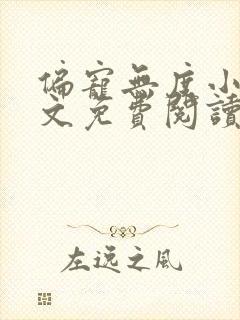 偏寵無度小
文免費閱讀
左逸之風